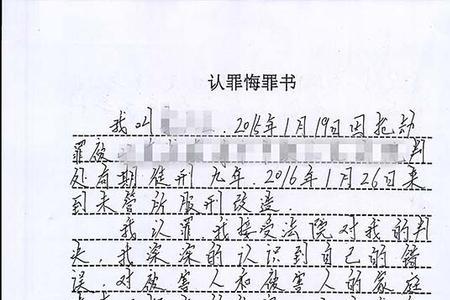 认罪悔罪书
我叫 2015年1月19日因抢劫
罪被 判
处有期徒刑九年。2016年1月26日来
到未管所服刑改造
我认罪 我接受法院对我的判
决，我深深的认识到自己的错
误，对被害人和被害人的家庭